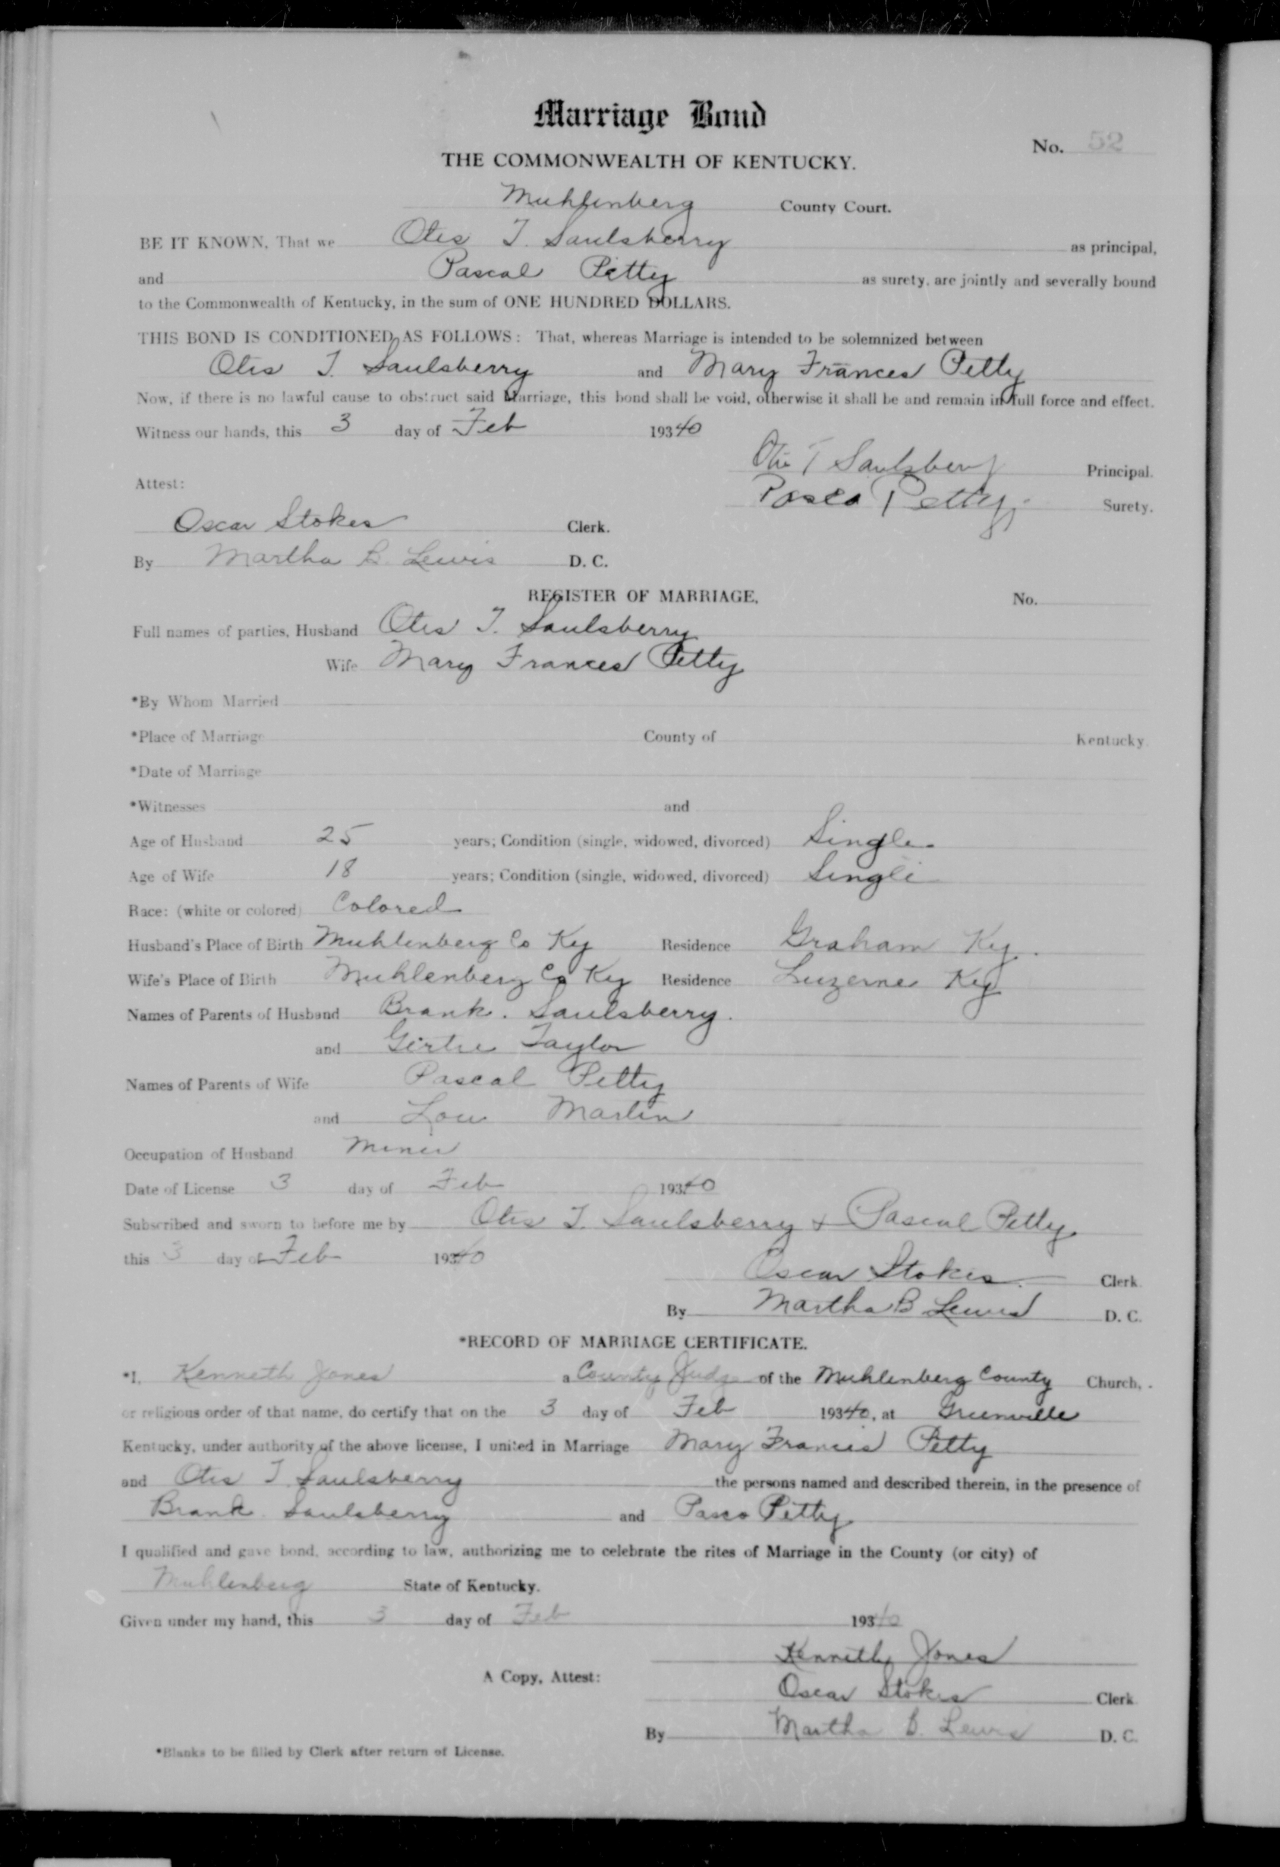 Marriage Bond
No. 52
THE COMMONWEALTH OF KENTUCKY.
Muhlenberg County Court.
BE IT KNOWN, That we Otis T. Saulsberry as principal,
and Pascal Petty as surety, are jointly and severally bound
to the Commonwealth of Kentucky, in the sum of ONE HUNDRED DOLLARS.
THIS BOND IS CONDITIONED AS FOLLOWS: That, whereas Marriage is intended to be solemnized between
Otis T. Saulsberry and Mary Frances Petty
Now, if there is no lawful cause to obstruct said Marriage, this bond shall be void, otherwise it shall be and remain in full force and effect.
Witness our hands, this 3 day of Feb 19340
Otis T Saulsberry Principal.
Attest:
Pasco Petty Surety.
Oscar Stokes Clerk.
By Martha B. Lewis D. C.
REGISTER OF MARRIAGE. No.
Full names of parties, Husband Otis T. Saulsberry
Wife Mary Frances Petty
*By Whom Married
*Place of Marriage County of Kentucky.
*Date of Marriage
*Witnesses and
Age of Husband 25 years; Condition (single, widowed, divorced) Single
Age of Wife 18 years; Condition (single, widowed, divorced) Single
Race: (white or colored) Colored
Husband's Place of Birth Muhlenberg Co Ky Residence Graham Ky.
Wife's Place of Birth Muhlenberg Co Ky Residence Luzerne Ky
Names of Parents of Husband Brank. Saulsberry.
and Girtie Taylor
Names of Parents of Wife Pascal Petty
and Lou Martin
Occupation of Husband Miner
Date of License 3 day of Feb 19340
Subscribed and sworn to before me by Otis T. Saulsberry + Pascal Petty
this 3 day of Feb 19340
Oscar Stokes Clerk
By Martha B Lewis D. C.
*RECORD OF MARRIAGE CERTIFICATE.
*I, Kenneth Jones a County Judge of the Muhlenberg County Church, .
or religious order of that name, do certify that on the 3 day of Feb 19340, at Greenville
Kentucky, under authority of the above license, I united in Marriage Mary Francis Petty
and Otis T Saulsberry the persons named and described therein, in the presence of
Brank Saulsberry and Pasco Petty
I qualified and gave bond, according to law, authorizing me to celebrate the rites of Marriage in the County (or city) of
Muhlenberg State of Kentucky.
Given under my hand, this 3 day of Feb 19340
Kenneth Jones
A Copy, Attest:
Oscar Stokes Clerk
By Martha B. Lewis D. C.
*Blanks to be filled by Clerk after return of License.